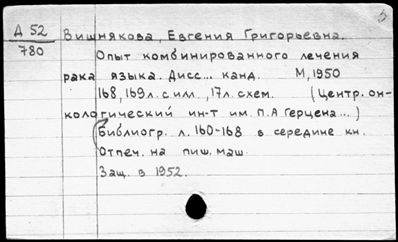 Д 52
780
Вишнякова, Евгения Григорьевна.
Опыт комбинированного лечения
рака языка. Дисс... канд. М, 1950
168, 169 л. с илл., 17 л. схем. (Центр. он-
кологический ин-т им. П.А Герцена...)
Библиогр. л. 160-168 в середине кн.
Отпеч. на пиш. маш.
Защ. в 1952.